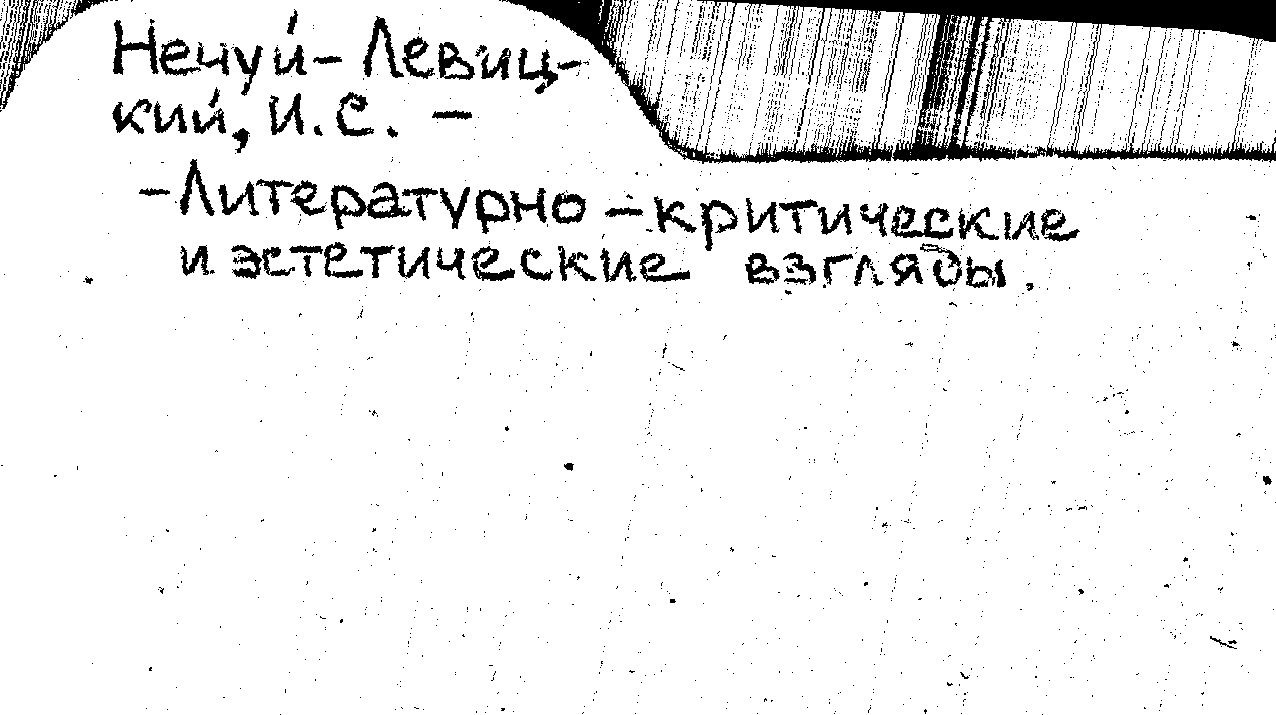 Нечуй-Левиц-
кий, И.С. -
-Литературно-критические
и эстетические взгляды.